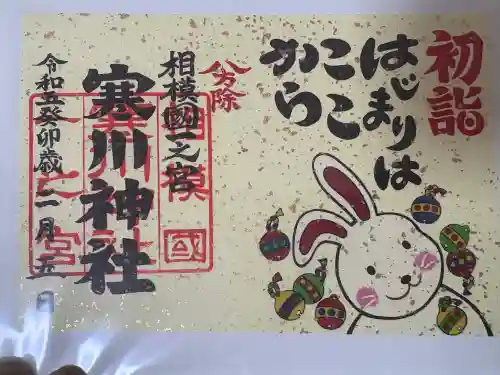 初詣
はじまりは
ここ
から
八方除
相模國一之宮
寒川神社
令和五癸卯歳一月五日